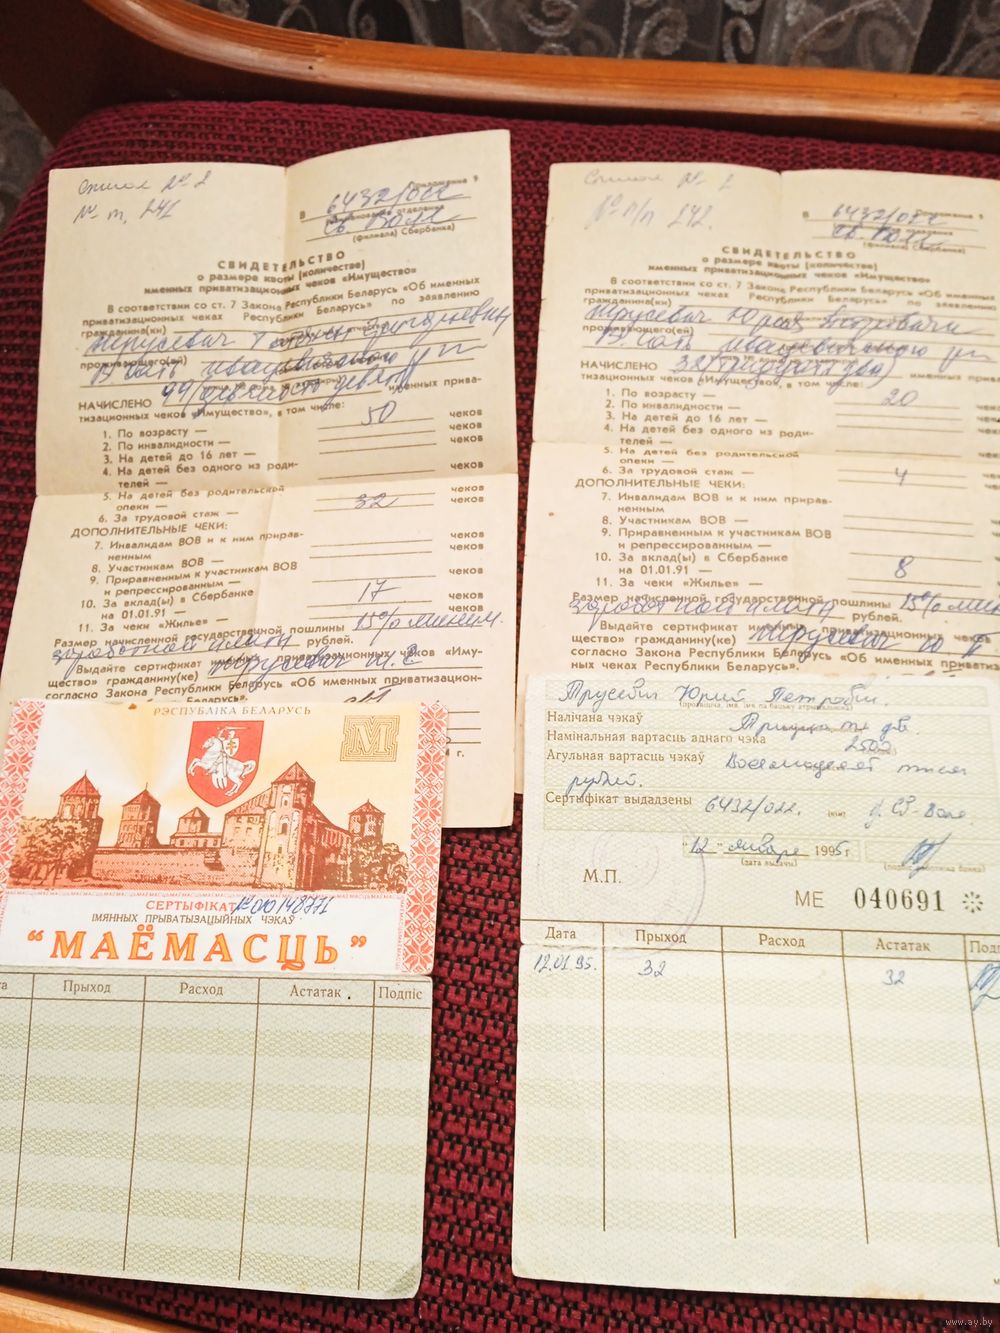 Список № 2
№ п. 241
Приложение 9
В 6432/022
отделение
Св. Воля
(филиала) Сбербанка)
СВИДЕТЕЛЬСТВО
о размере квоты (количестве)
именных приватизационных чеков «Имущество»
В соответствии со ст. 7 Закона Республики Беларусь «Об именных
приватизационных чеках Республики Беларусь» по заявлению
гражданина(ки)
Трусевич
проживающего(ей)
НАЧИСЛЕНО 99 именных прива-
тизационных чеков «Имущество», в том числе:
1. По возрасту — 50 чеков
2. По инвалидности — чеков
3. На детей до 16 лет — чеков
4. На детей без одного из роди-
телей — чеков
5. На детей без родительской
опеки — чеков
6. За трудовой стаж — 32 чеков
ДОПОЛНИТЕЛЬНЫЕ ЧЕКИ:
7. Инвалидам ВОВ и к ним прирав-
ненным чеков
8. Участникам ВОВ — чеков
9. Приравненным к участникам ВОВ
и репрессированным — чеков
10. За вклад(ы) в Сбербанке
на 01.01.91 — 17 чеков
11. За чеки «Жилье» — чеков
Размер начисленной государственной пошлины 15% миним.
заработной платы рублей.
Выдайте сертификат именных приватизационных чеков «Иму-
щество» гражданину(ке) Трусевич Т. С.
согласно Закона Республики Беларусь «Об именных приватизацион-
ных чеках Республики Беларусь».
Список № 2
№ п/п 242.
Приложение 9
В 6432/022
Св. Воля
(филиала) Сбербанка)
СВИДЕТЕЛЬСТВО
о размере квоты (количестве)
именных приватизационных чеков «Имущество»
В соответствии со ст. 7 Закона Республики Беларусь «Об именных
приватизационных чеках Республики Беларусь» по заявлению
гражданина(ки)
Трусевич Юрия Петровича
проживающего(ей)
НАЧИСЛЕНО 32 (тридцать два) именных прива
тизационных чеков «Имущество», в том числе:
1. По возрасту — 20
2. По инвалидности —
3. На детей до 16 лет —
4. На детей без одного из роди-
телей —
5. На детей без родительской
опеки —
6. За трудовой стаж — 4
ДОПОЛНИТЕЛЬНЫЕ ЧЕКИ:
7. Инвалидам ВОВ и к ним прирав-
ненным
8. Участникам ВОВ —
9. Приравненным к участникам ВОВ
и репрессированным —
10. За вклад(ы) в Сбербанке
на 01.01.91 — 8
11. За чеки «Жилье» —
Размер начисленной государственной пошлины 15% миним
заработной платы рублей.
Выдайте сертификат именных приватизационных чеков
щество» гражданину(ке) Трусевич Ю. П
согласно Закона Республики Беларусь «Об именных приватиз
ных чеках Республики Беларусь».
РЭСПУБЛІКА БЕЛАРУСЬ
М
СЕРТЫФІКАТ № 00148771
ІМЯННЫХ ПРЫВАТЫЗАЦЫЙНЫХ ЧЭКАЎ
“МАЁМАСЦЬ”
Прыход Расход Астатак Подпіс
Трусевич Юрий Петрович.
(прозвішча, імя, імя па бацьку атрымальніка)
Налічана чэкаў Тридцать два
Намінальная вартасць аднаго чэка 2500
Агульная вартасць чэкаў Восемьдесят тысяч
рублей.
Сертыфікат выдадзены 6432/022, д. Св-Воля.
“12” января 1995 г.
(дата выдачы)
М.П.
МЕ 040691
Дата Прыход Расход Астатак Подп
12.01.95. 32 32
www.ay.by